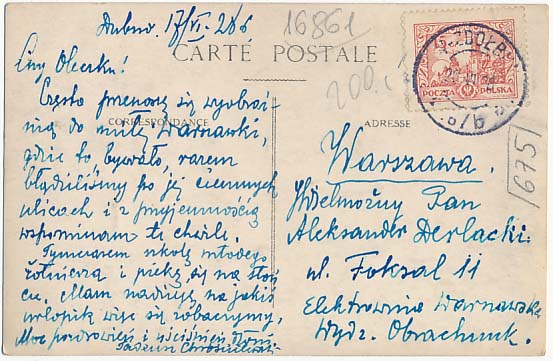 Dubno, 17/VI. 28 r.
16861
CARTE POSTALE
200.
Olecku!
Często przenoszę się wyobraź-
nią do miłej Warszawki,
CORRESPONDANCE
gdzie to bywało, razem
błądziliśmy po jej ciemnych
ulicach i z przyjemnością
wspominam te chwile.
Tymczasem szkolę młodego
żołnierza i piekę się na słoń-
cu. Mam nadzieję, na jakiś
urlopik więc się zobaczymy.
Moc pozdrowień i uściśnień dłoni
Tadeusz
15
POCZTA POLSKA
ADRESSE
Warszawa.
Wielmożny Pan
Aleksander Derlacki.
ul. Foksal 11
Elektrownia Warszawska
Wydz. Obrachunk.
1675